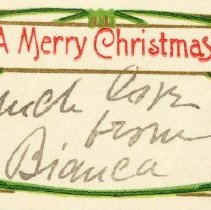 A Merry Christmas
uch Love
from
Bianca